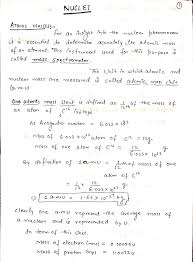 NUCLEI
①
Atomic Masses:-
For an insight into the nuclear phenomenon
it is essential to determine accurately the atomic mass
of an element. The instrument used for this purpose is
called mass spectrometer.
The unit in which atomic and
nuclear mass are measured is called atomic mass unit
(a.m.u)
One atomic mass unit is defined as 1/12 of the mass of
an atom of C12 isotope
As Avogadro number = 6.023 × 10^23
∴ Mass of 6.023 × 10^23 atom of C12 = 12g.
∴ Mass of 1 atom of C12 = 12/6.023×10^23 g
By definition of 1 a.m.u = 1/12 mass of one
atom of C12
= 1/12 × 12/6.023×10^23 g
1 a.m.u = 1.66 × 10^-27 kg
Clearly one a.m.u represent the average mass of
a nucleon and is represented by
In term of this unit.
Mass of electron (me) =
Mass of proton (mp) =